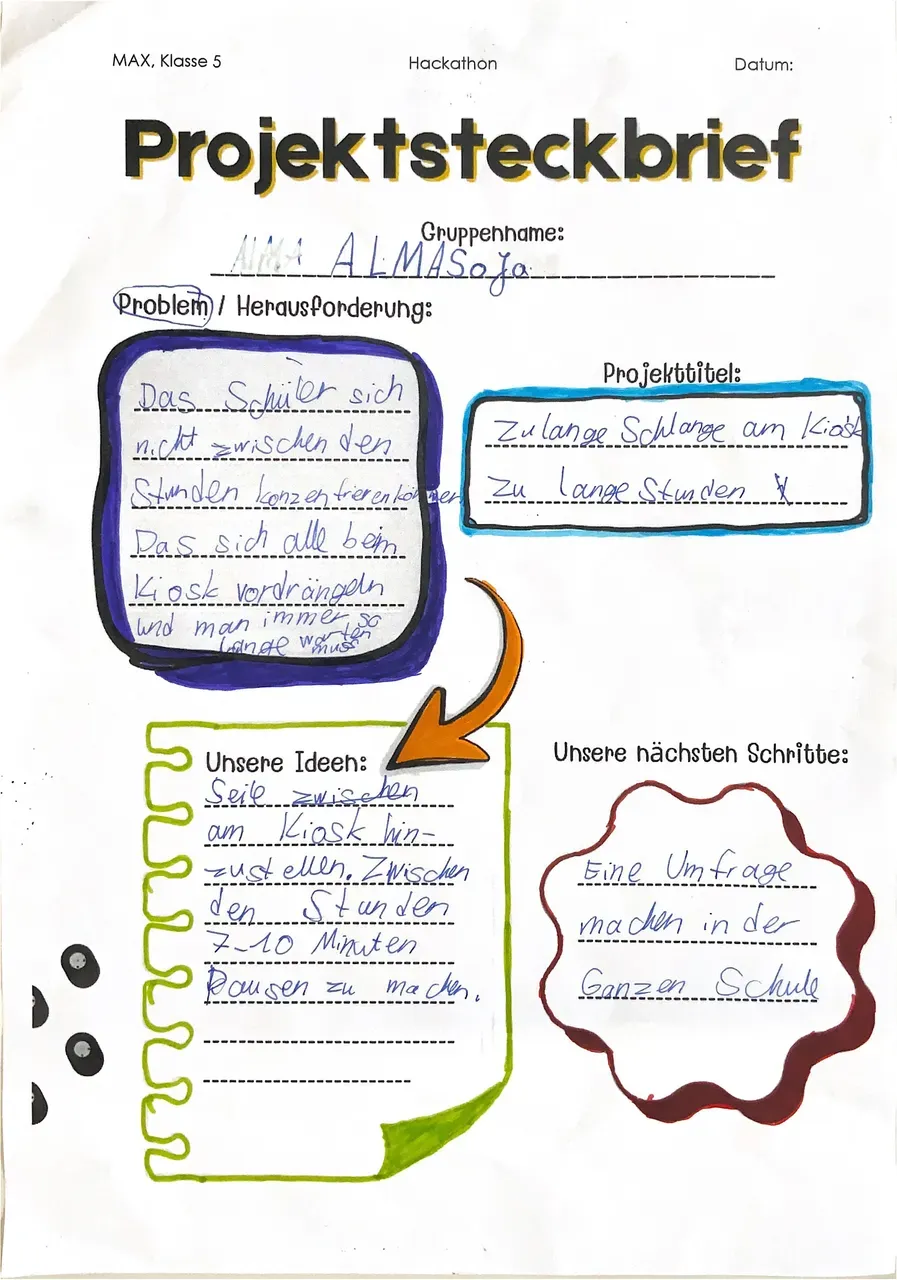 MAX, Klasse 5
Hackathon
Datum:
Projektsteckbrief
Gruppenname:
ALMASoJa
Problem / Herausforderung:
Das Schüler sich
nicht zwischen den
Stunden konzentrieren können
Das sich alle beim
Kiosk vordrängeln
und man immer so
lange warten
muss
Projekttitel:
Zu lange Schlange am Kiosk
Zu lange Stunden
Unsere Ideen:
Seile zwischen
am Kiosk hin-
zustellen. Zwischen
den Stunden
7-10 Minuten
Pausen zu machen.
Unsere nächsten Schritte:
Eine Umfrage
machen in der
Ganzen Schule